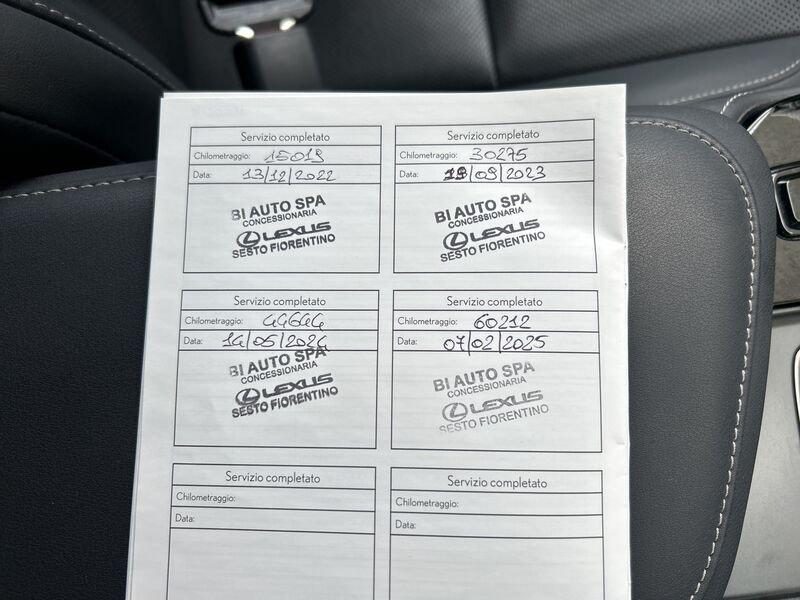 Servizio completato
Chilometraggio: 15019
Data: 13/12/2022
BI AUTO SPA
CONCESSIONARIA
LEXUS
SESTO FIORENTINO
Servizio completato
Chilometraggio: 30275
Data: 19/09/2023
BI AUTO SPA
CONCESSIONARIA
LEXUS
SESTO FIORENTINO
Servizio completato
Chilometraggio: 44644
Data: 14/05/2024
BI AUTO SPA
CONCESSIONARIA
LEXUS
SESTO FIORENTINO
Servizio completato
Chilometraggio: 60212
Data: 07/02/2025
BI AUTO SPA
CONCESSIONARIA
LEXUS
SESTO FIORENTINO
Servizio completato
Chilometraggio:
Data:
Servizio completato
Chilometraggio:
Data: